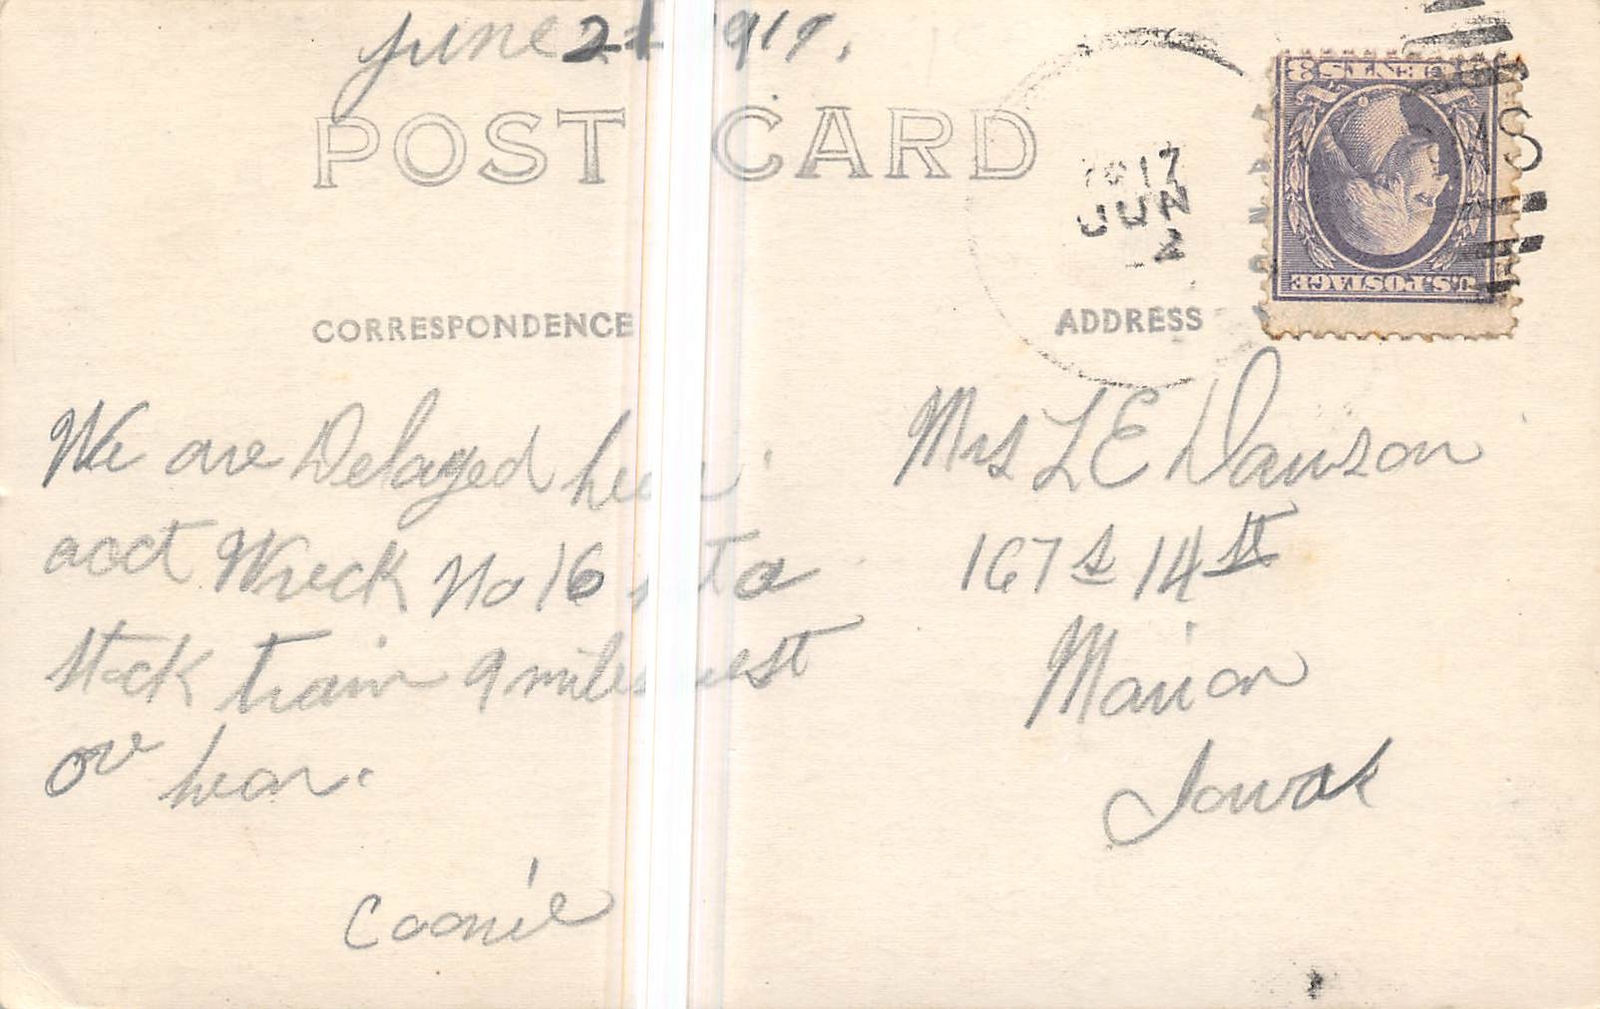 June 21 1917,
POST CARD
17
JUN
2
3 CENTS 3
U.S. POSTAGE
CORRESPONDENCE
ADDRESS
We are Delayed hear
acct Wreck No 16 a
Stock train 9 miles west
ov hear.
Coonie
Mrs L E Dawson
167 S 14 St
Marion
Iowa